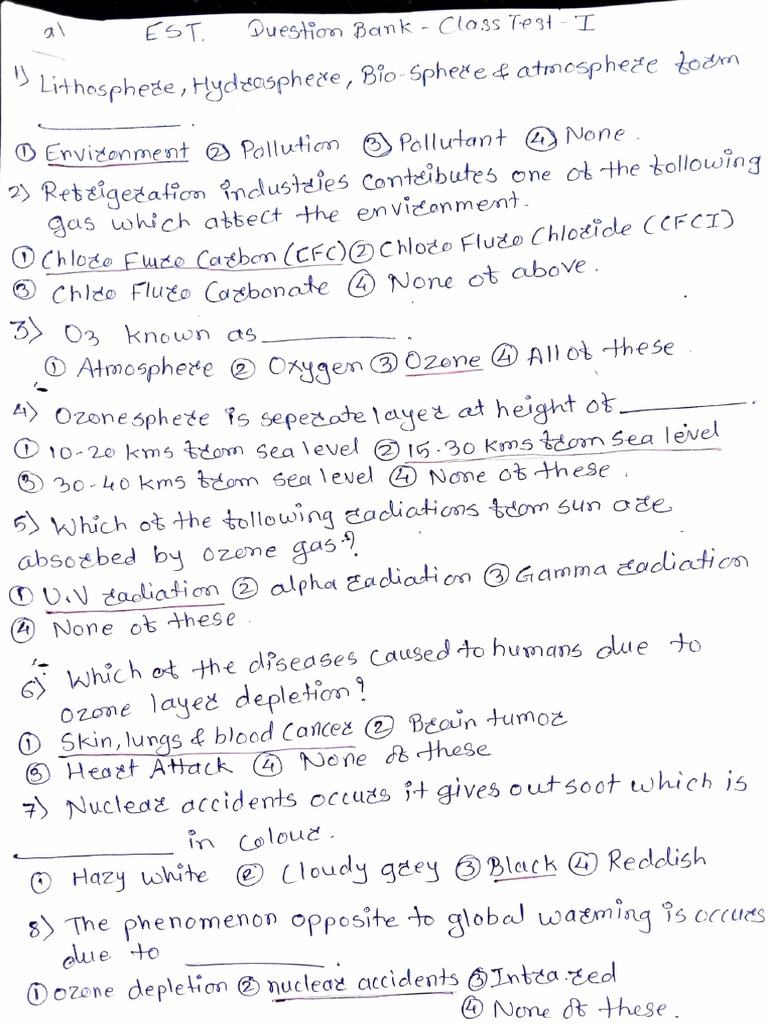 a) EST. Question Bank - Class Test - I
1) Lithosphere, Hydrosphere, Bio-sphere & atmosphere form
________ .
① Environment ② Pollution ③ Pollutant ④ None.
2) Refrigeration industries contributes one of the following
gas which affect the environment.
① Chloro Fluro Carbon (CFC) ② Chloro Fluro Chloride (CFCI)
③ Chlro Fluro Carbonate ④ None of above.
3) O3 known as ________ .
① Atmosphere ② Oxygen ③ Ozone ④ All of these
4) Ozonesphere is seperate layer at height of ________ .
① 10-20 kms from sea level ② 15-30 kms from sea level
③ 30-40 kms from sea level ④ None of these.
5) Which of the following radiations from sun are
absorbed by ozone gas?
① U.V radiation ② alpha radiation ③ Gamma radiation
④ None of these
6) Which of the diseases caused to humans due to
ozone layer depletion?
① Skin, lungs & blood cancer ② Brain tumor
③ Heart Attack ④ None of these
7) Nuclear accidents occurs it gives out soot which is
________ in colour.
① Hazy white ② Cloudy grey ③ Black ④ Reddish
8) The phenomenon opposite to global warming is occurs
due to ________ .
① ozone depletion ② nuclear accidents ③ Intra.red
④ None of these.